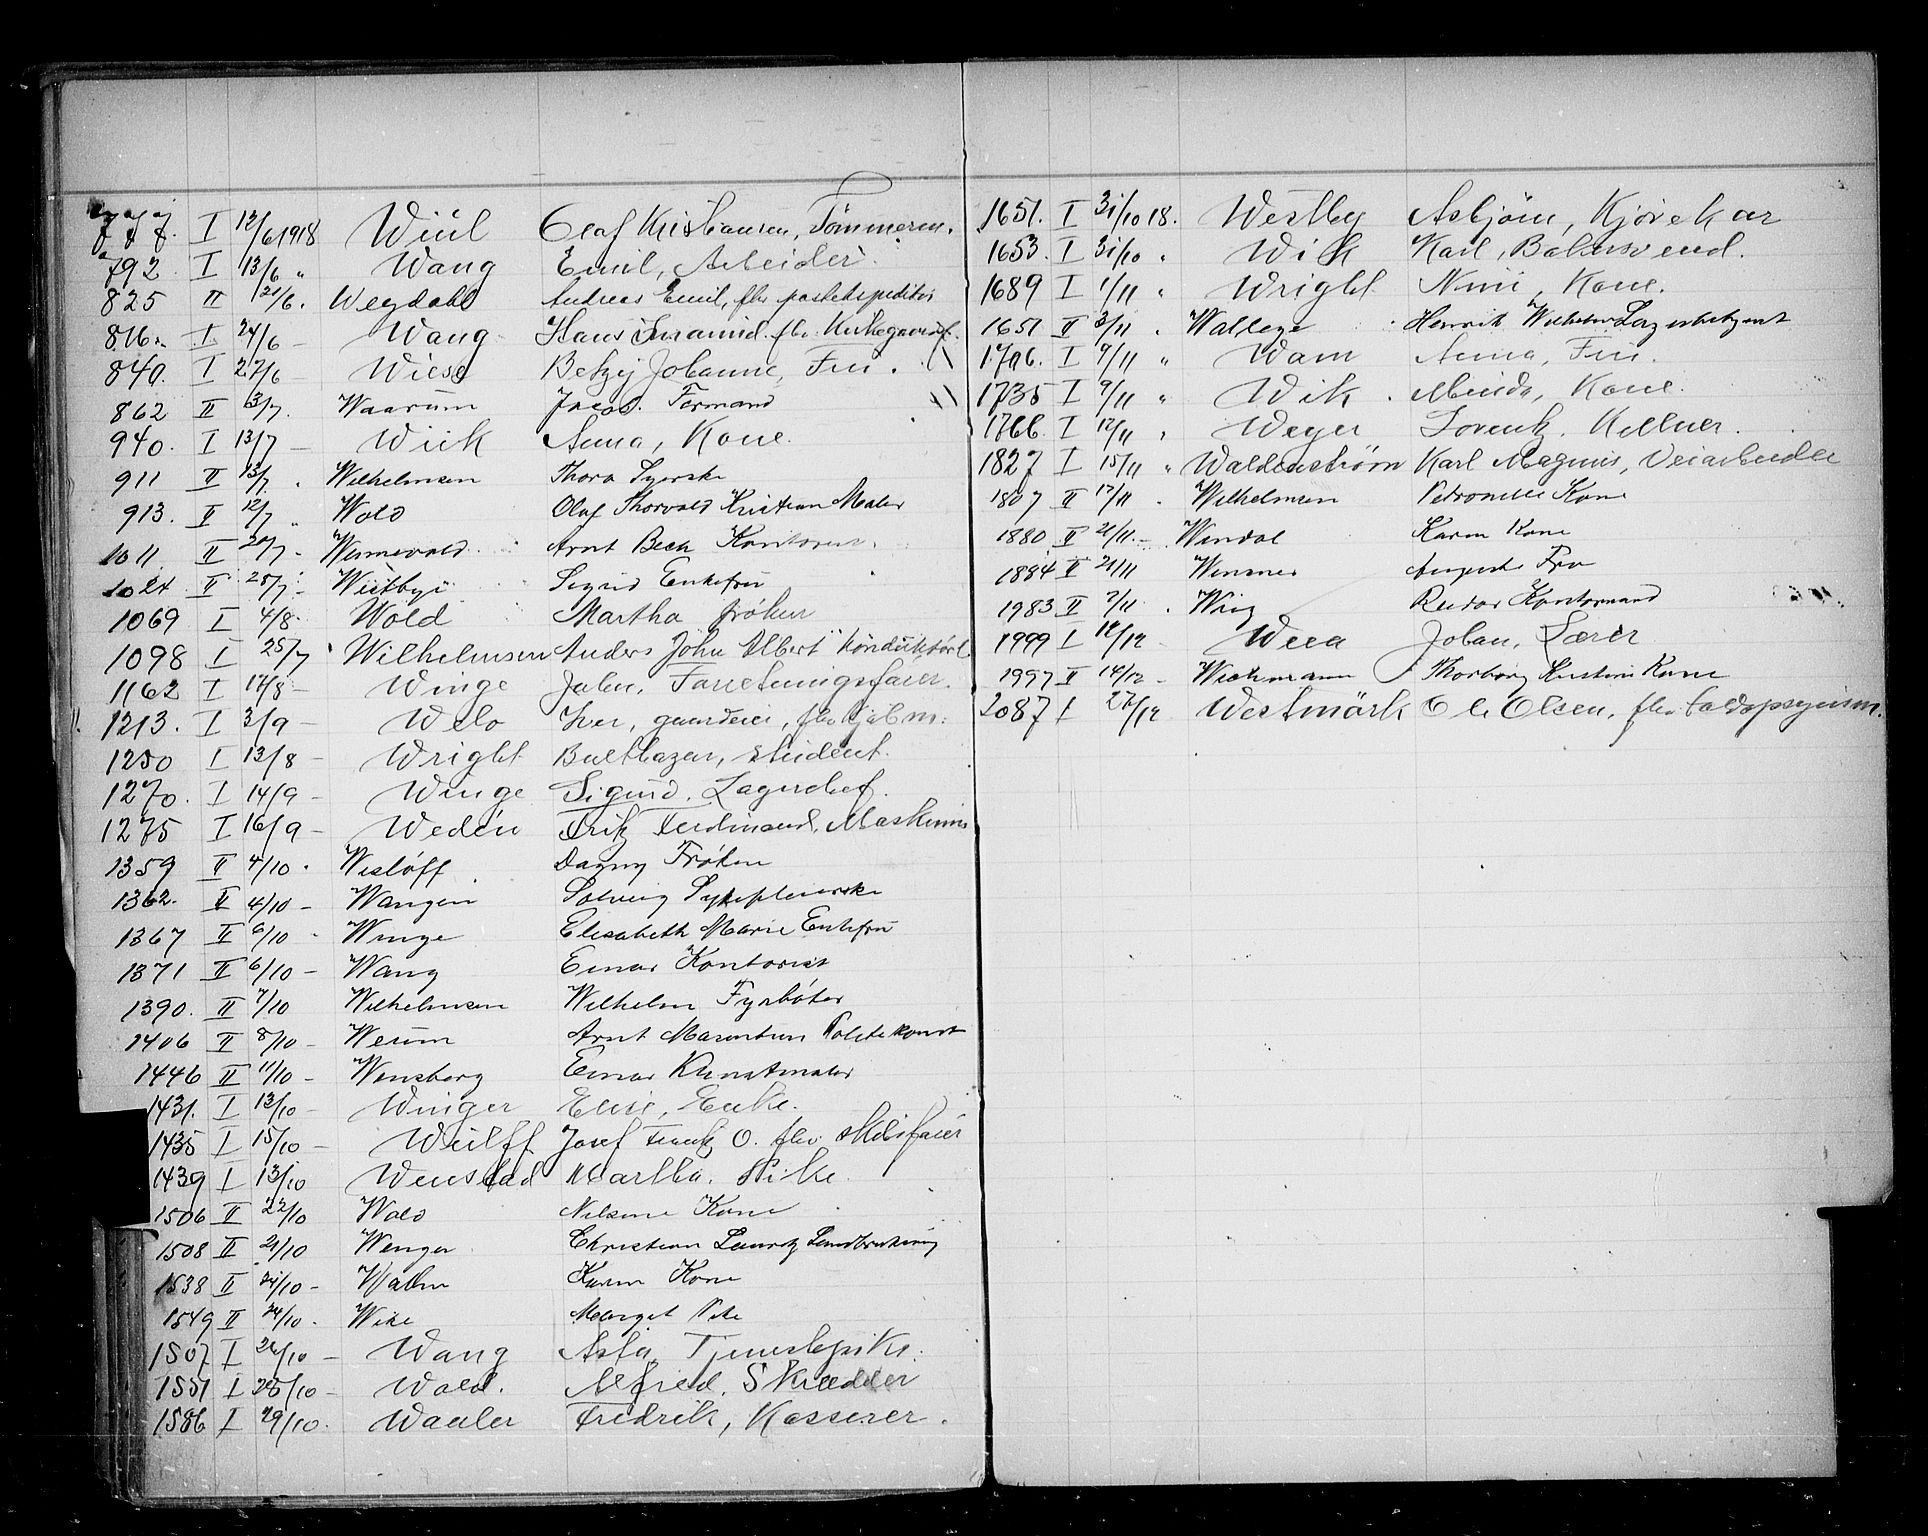 777. I 12/6 1918 Wiul Olaf Kristiansen, Tømmerm.
792. I 13/6 " Wang Emil, Arbeider.
825 II 21/6. Wegdahl Andreas Emil, fhv postekspeditør
816. I 24/6 - Wang Hans fhv Kirkegaards
840. I 27/6 Wiese Betzy Johanne, Fru.
862 II 3/7. Waarum Jacob. Formand
940. I 13/7 - Wiik Anna, Kone.
911 II 13/7 . Wilhelmsen Thora Syerske
913. II 12/7 " Wold Olaf Thorvald Kristian Maler
1011 II 20/7 - Wennevold Arnt Bech Kontorist.
1024 II 25/7 - Westbye Sigrid Enkefru
1069 I 4/8 Wold Martha frøken
1098 I 25/7 Wilhelmsen Anders John Albert Konduktør
1162 I 17/8 - Winge John, Forretningsfører.
1213. I 3/9 - Welo Iver, gaardeier, fhv
1250 I 13/8 - Wright Balthazar, student.
1270. I 14/9 - Winge Sigurd. Lagerchef.
1275 I 16/9 - Wedén Fritz Ferdinand, Maskinm
1359 II 4/10 . Wisløff Dagny Frøken
1362. II 4/10 - Wangen Solveig Sykepleierske
1367 II 6/10 Winge Elisabeth Marie Enkefru
1371 II 6/10 - Wang Einar Kontorist
1390. II 7/10 Wilhelmsen Wilhelm Fyrbøter
1406 II 8/10 - Weum Arnt Politikonst
1446 II 11/10 - Wensberg Einar Kunstmaler
1431. I 13/10 - Winger Elise, Enke.
1435 I 15/10 - Wulff Josef O. fhv. Skibsfører
1439 I 13/10 Wenstad Martha. Pike.
1506 II 22/10 Wold Nilsine Kone
1508 II 21/10 Wenger Christian Lauritz
1538 II 24/10 - Walm Karen Kone
1549 II 24/10 . Wike Marget Pike
1507 I 26/10 - Wang Asta, Tjenestepike.
1551 I 28/10 - Wold. Alfred, Skrædder
1586 I 29/10. Waaler Fredrik, Kasserer.
1651. I 31/10 18. Westby Asbjørn, Kjørekar
1653. I 31/10 " Wik Karl, Bakersvend.
1689 I 1/11 " Wright Nini, Kone.
1651 II 3/11 . Wallege Henrik Wilhelm
1706. I 7/11 " Wam Anna, Fru.
1735 I 9/11 " Wik . Minda, Kone.
1766. I 12/11 " Weyer Lorentz. Kellner.
1827 I 15/11 " Waldenstrøm Karl Magnus, Veiarbeider
1807 II 17/11 . Wilhelmsen Petronelle Kone
1880 II 21/11 - Wendal Karen Kone
1884 II 21/11 Wensnes Augusta Fru
1983 II 7/11 . Wiig Reidar Kontormand
1999 I 12/12 Weea Johan, Lærer
1997 II 14/12 - Wichmann Thorborg Kirstine Kone
2087 I 27/12 Westmørk Ole Olsen, fhv toldopsynsm.